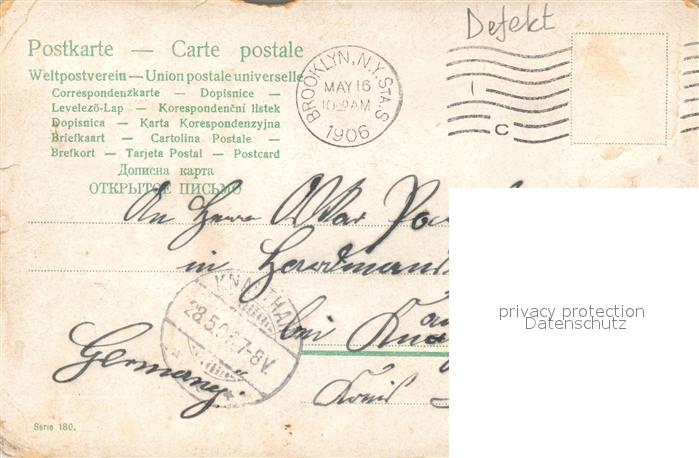 Defekt
Postkarte — Carte postale
Weltpostverein — Union postale universelle
Correspondenzkarte — Dopisnice —
Levelező-Lap — Korespondenční listek
Dopisnica — Karta Korespondenzyjna
Briefkaart — Cartolina Postale —
Brefkort — Tarjeta Postal — Postcard
Дописна карта
ОТКРЫТОЕ ПИСЬМО
BROOKLYN, N.Y. STA. S
MAY 16
AM
1906
1
C
An Herrn
in
bei
Germany.
Kreis
28.5.
7-8V.
privacy protection
Datenschutz
Serie 180.